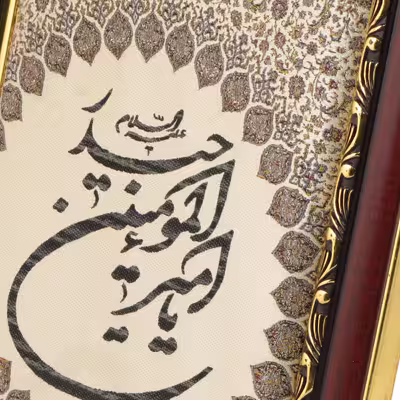 یا امیر
المؤمنین
حیدر
علیه السلام